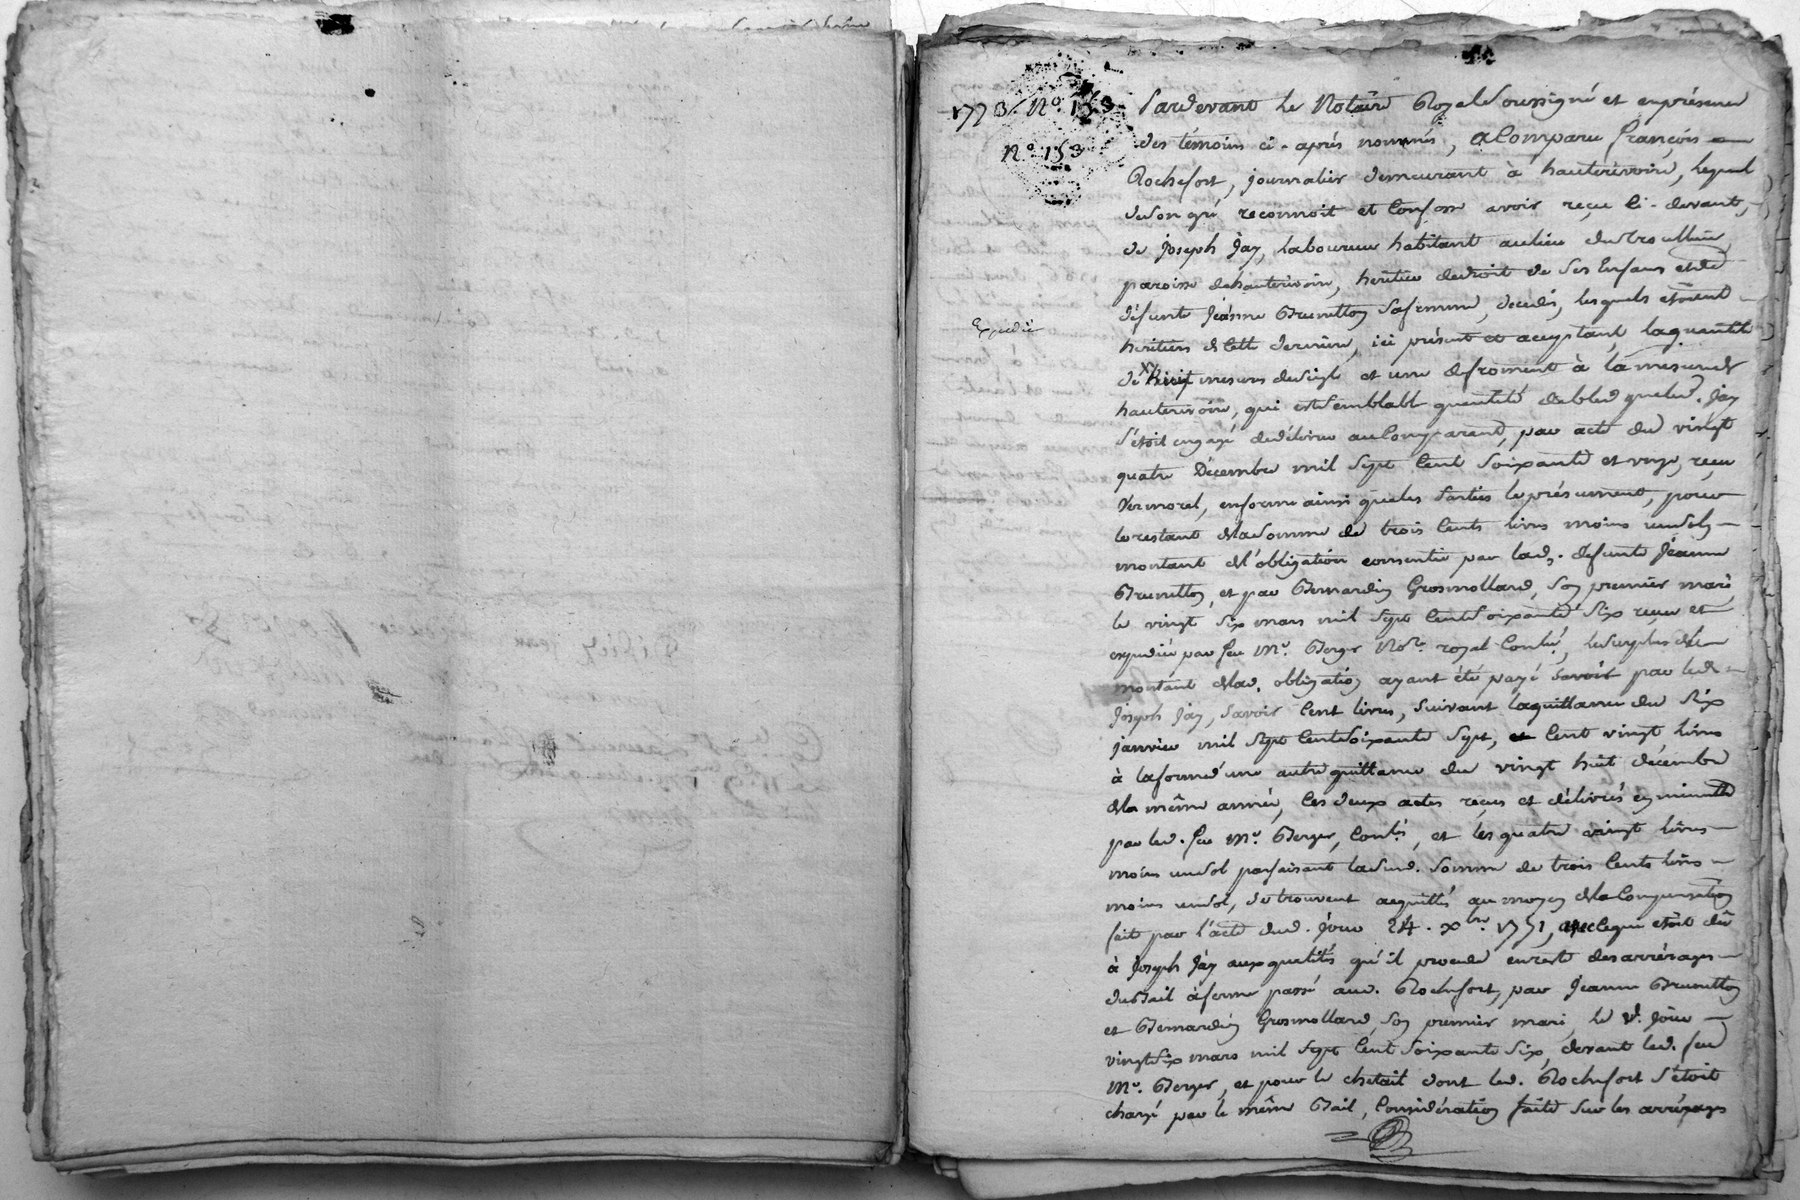 1773. N.º 153
N.º 153
Expedié
Pardevant le Notaire Royal soussigné et en présence
des témoins ci-après nommés, a Comparu françois
Rochefort, journalier demeurant à hauterivoire, lequel
de son gré reconnoit et Confesse avoir reçu Ci-devant,
de joseph jay, laboureur habitant au lieu du
paroisse de hauterivoire, heritier de droit de ses Enfans et de
défunte jeanne Brunetton sa femme, decedés, lesquels étoient
heritiers de Cette derniere, ici présent et acceptant, la quantité
de mesures de seigle et une de froment à la mesure de
hauterivoire, qui est semblable quantité de bled que led. jay
s'étoit engagé de délivrer au Comparant, par acte du vingt
quatre Décembre mil sept Cent soixante et onze, reçu
Vermorel, en forme ainsi que les parties le présument, pour
le restant de la somme de trois Cents livres moins un sol,
montant de l'obligation consentie par lad. defunte jeanne
Brunetton, et par Bernardin Grosmollard, son premier mari,
le vingt six mars mil sept Cent soixante six reçue et
expediée par feu M.e Berger No.re royal Con.lé, le surplus du
montant de lad. obligation ayant été payé savoir par led.
joseph jay, savoir Cent livres, suivant la quittance du six
janvier mil sept Cent soixante sept, et Cent vingt livres
à la forme d'une autre quittance du vingt huit décembre
de la même année, les deux actes reçus et délivrés en minutte
par led. feu M.e Berger, Con.lé, et les quatre vingt livres
moins un sol parfaisant lad. somme de trois Cents livres
moins un sol, se trouvent acquittés au moyen de la Compensation
fait par l'acte dud. jour 24. xbre. 1771, avec le qui étoit dû
à joseph jay aux qualités qu'il procede en reste des arrérages
du Bail à ferme passé aud. Rochefort, par jeanne Brunetton
et Bernardin Grosmollard, son premier mari, le d. jour
vingt six mars mil sept Cent soixante six, devant led. feu
M.e Berger, et pour le cheptail dont led. Rochefort s'étoit
chargé par le même Bail, Considération faite sur les arrérages